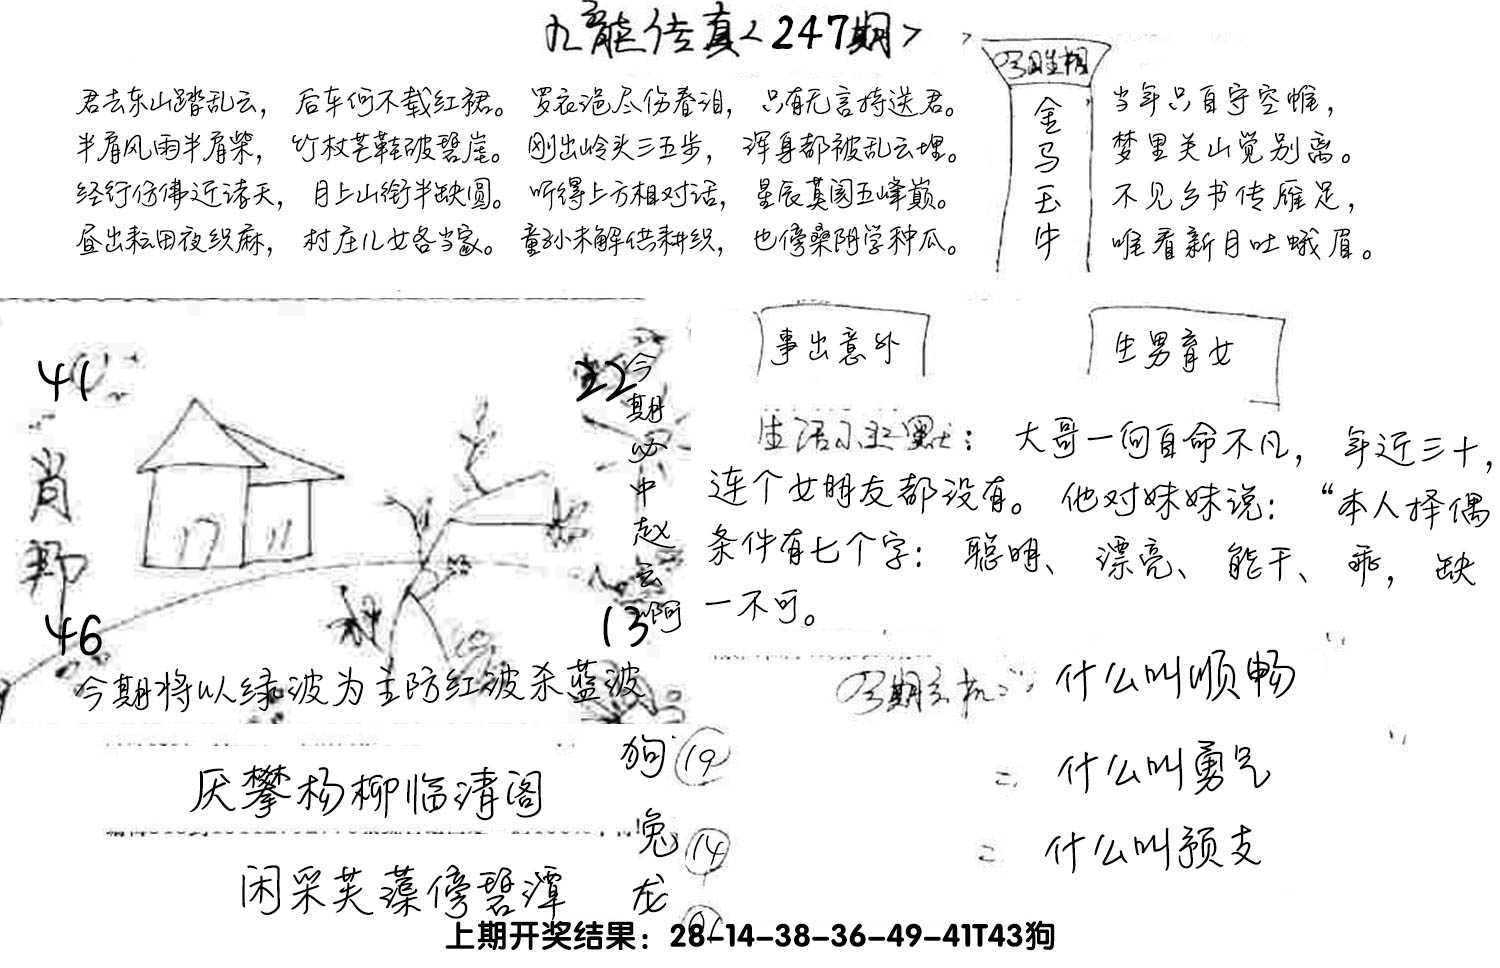 九龙传真<247期>
君去东山踏乱云，后车何不载红裙。罗衣浥尽伤春泪，只有无言持送君。
半肩风雨半肩柴，竹杖芒鞋破碧崖。刚出岭头三五步，浑身都被乱云埋。
经行仿佛近诸天，月上山衔半缺圆。听得上方相对话，星辰莫阂五峰巅。
昼出耘田夜织麻，村庄儿女各当家。童孙未解供耕织，也傍桑阴学种瓜。
金马玉牛
当年只自守空帷，
梦里关山觉别离。
不见乡书传雁足，
唯看新月吐蛾眉。
41
22
肖
46
13
今期必中赵云啊
今期将以绿波为主防红波杀蓝波
事出意外
生男育女
生活小幽默：大哥一向自命不凡，年近三十，
连个女朋友都没有。他对妹妹说：“本人择偶
条件有七个字：聪明、漂亮、能干、乖，缺
一不可。
什么叫顺畅
什么叫勇气
什么叫预支
厌攀杨柳临清阁
闲采芙蕖傍碧潭
狗 19
兔 14
龙
上期开奖结果：28-14-38-36-49-41T43狗